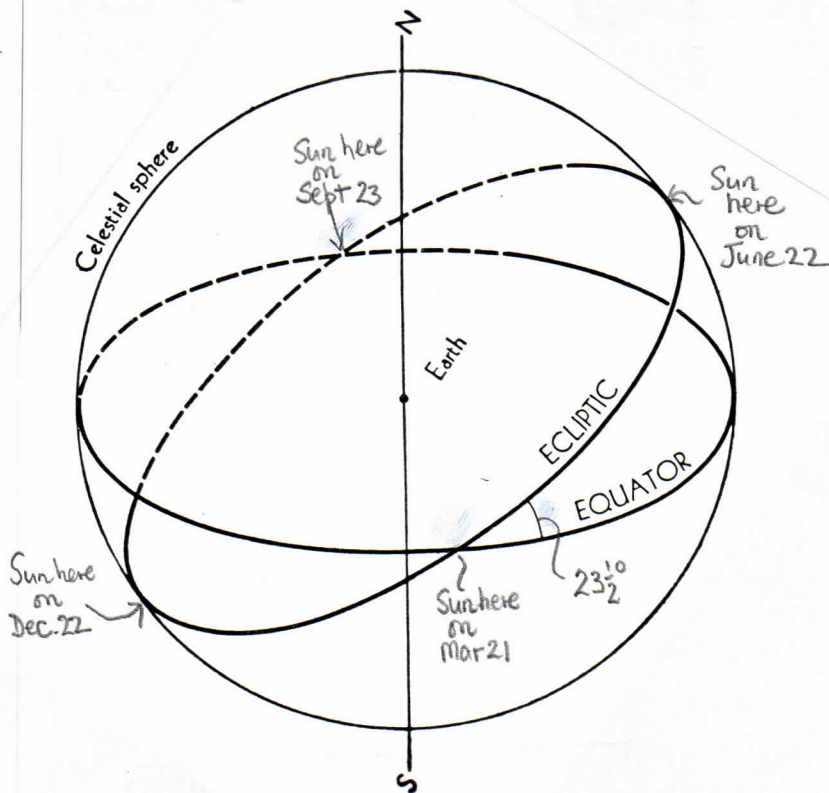 N
Celestial sphere
Sun here
on
Sept 23
Sun
here
on
June 22
Earth
ECLIPTIC
EQUATOR
23½°
Sun here
on
Dec. 22
Sun here
on
Mar 21
S